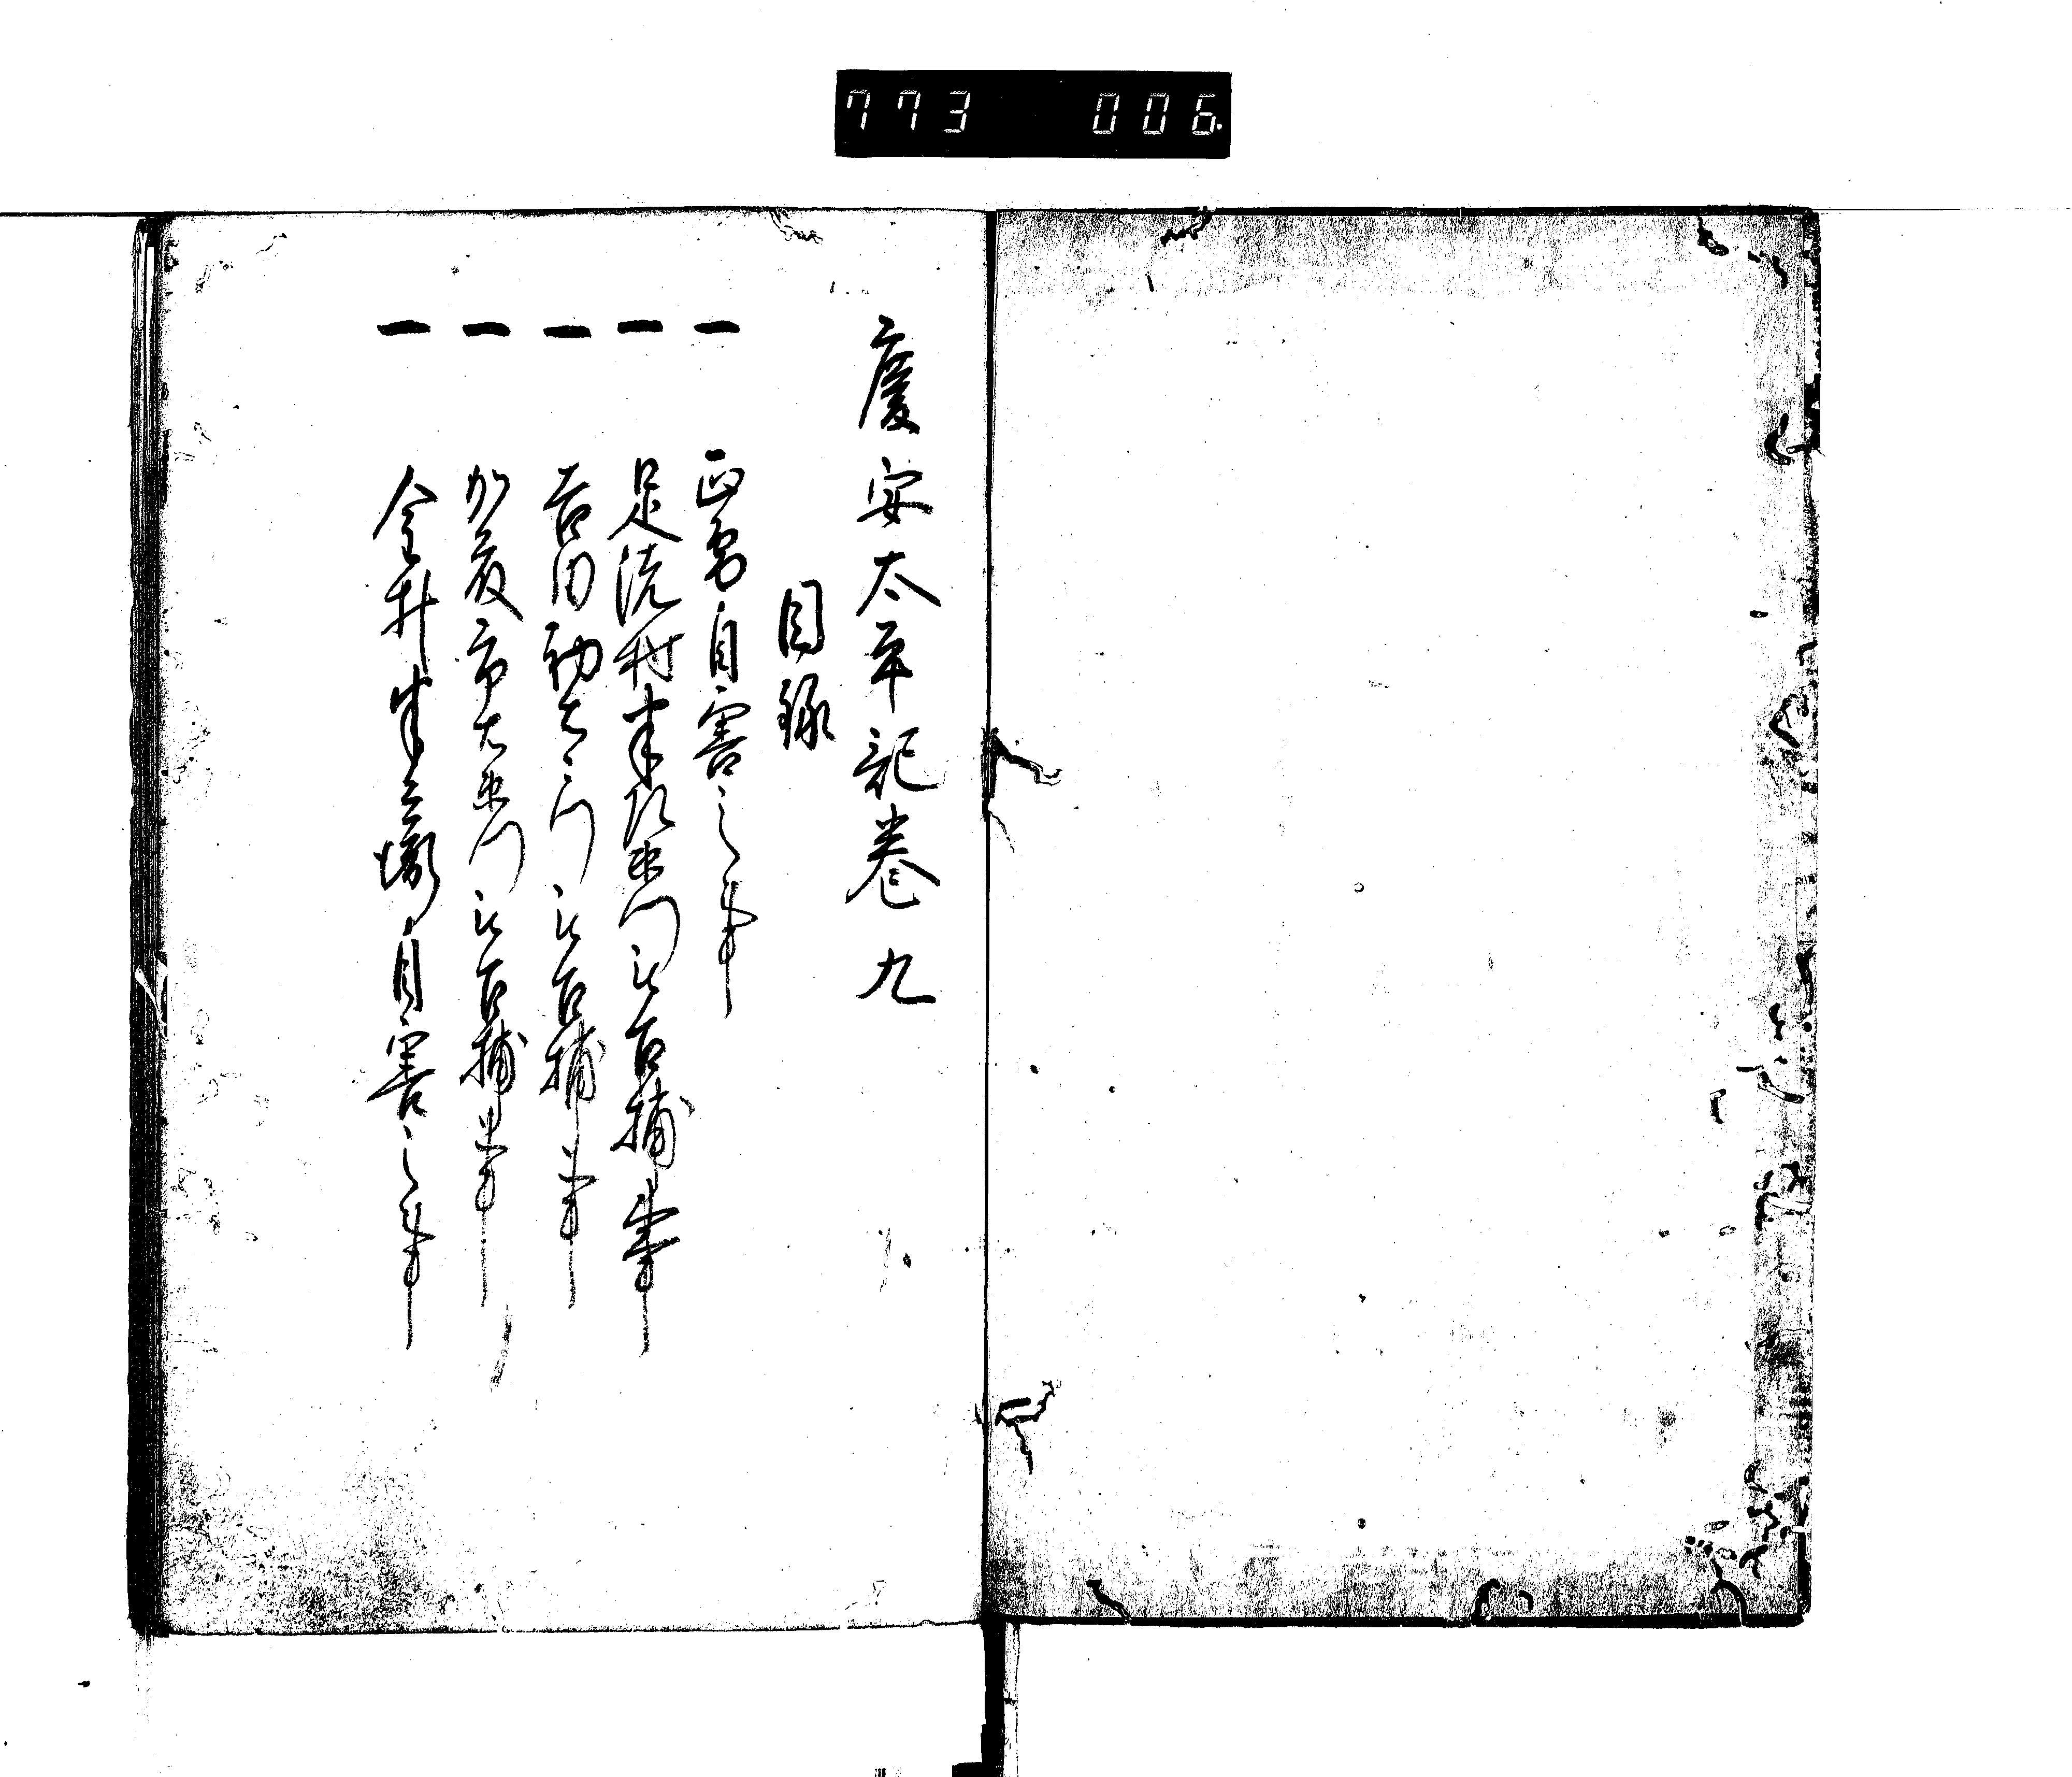 773 006
慶安太平記巻九
目録
一 正雪自害之事
一 足洗村半衛門被召捕事
一 吉田初右衛門被召捕事
一 加藤市右衛門被召捕事
一 金井半兵衛自害之事